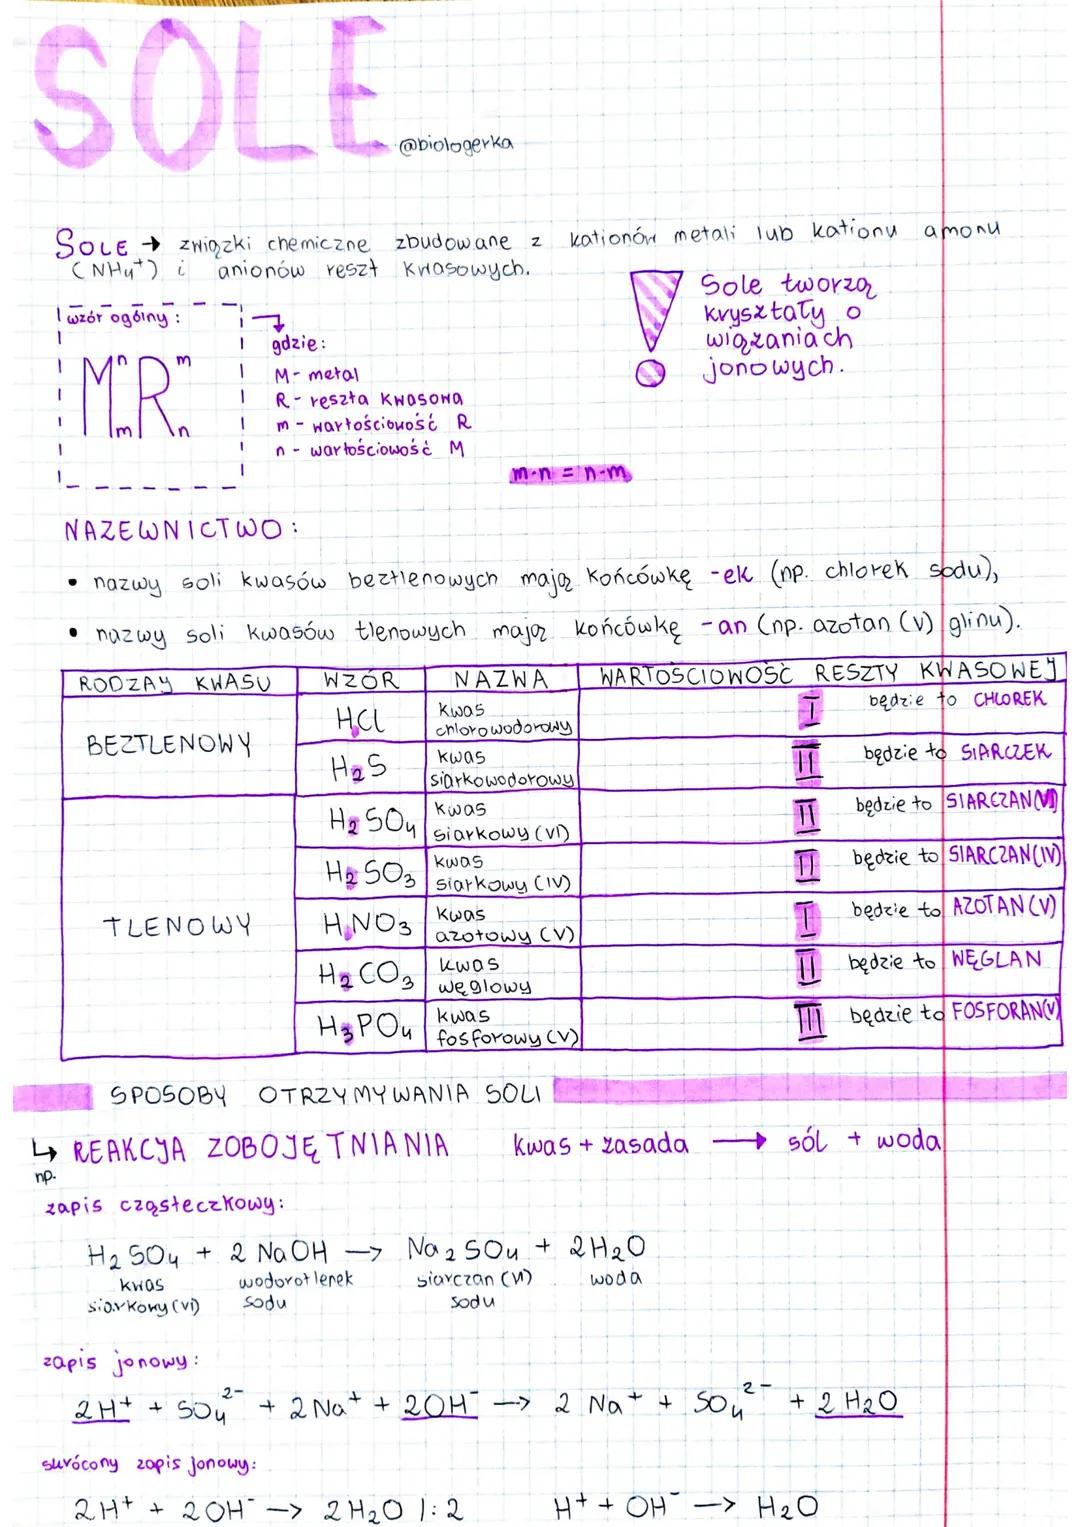 SOLE
@biologerka
SOLE → związki chemiczne zbudowane z kationów metali lub kationu amonu
(NH₄⁺) i anionów reszt kwasowych.
wzór ogólny:
Mⁿₘ Rᵐₙ
gdzie:
M - metal
R - reszta kwasowa
m - wartościowość R
n - wartościowość M
! Sole tworzą
kryształy o
wiązaniach
jonowych.
m·n = n·m
NAZEWNICTWO:
• nazwy soli kwasów beztlenowych mają końcówkę -ek (np. chlorek sodu),
• nazwy soli kwasów tlenowych mają końcówkę -an (np. azotan (V) glinu).
RODZAJ KWASU WZÓR NAZWA WARTOŚCIOWOŚĆ RESZTY KWASOWEJ
BEZTLENOWY
HCl kwas chlorowodorowy I będzie to CHLOREK
H₂S kwas siarkowodorowy II będzie to SIARCZEK
TLENOWY
H₂SO₄ kwas siarkowy (VI) II będzie to SIARCZAN(VI)
H₂SO₃ kwas siarkowy (IV) II będzie to SIARCZAN(IV)
HNO₃ kwas azotowy (V) I będzie to AZOTAN(V)
H₂CO₃ kwas węglowy II będzie to WĘGLAN
H₃PO₄ kwas fosforowy (V) III będzie to FOSFORAN(V)
SPOSOBY OTRZYMYWANIA SOLI
↳ REAKCJA ZOBOJĘTNIANIA kwas + zasada → sól + woda
np.
zapis cząsteczkowy:
H₂SO₄ + 2 NaOH → Na₂SO₄ + 2H₂O
kwas wodorotlenek siarczan (VI) woda
siarkowy (VI) sodu sodu
zapis jonowy:
2H⁺ + SO₄²⁻ + 2 Na⁺ + 2OH⁻ → 2 Na⁺ + SO₄²⁻ + 2 H₂O
skrócony zapis jonowy:
2H⁺ + 2OH⁻ → 2H₂O /: 2 H⁺ + OH⁻ → H₂O